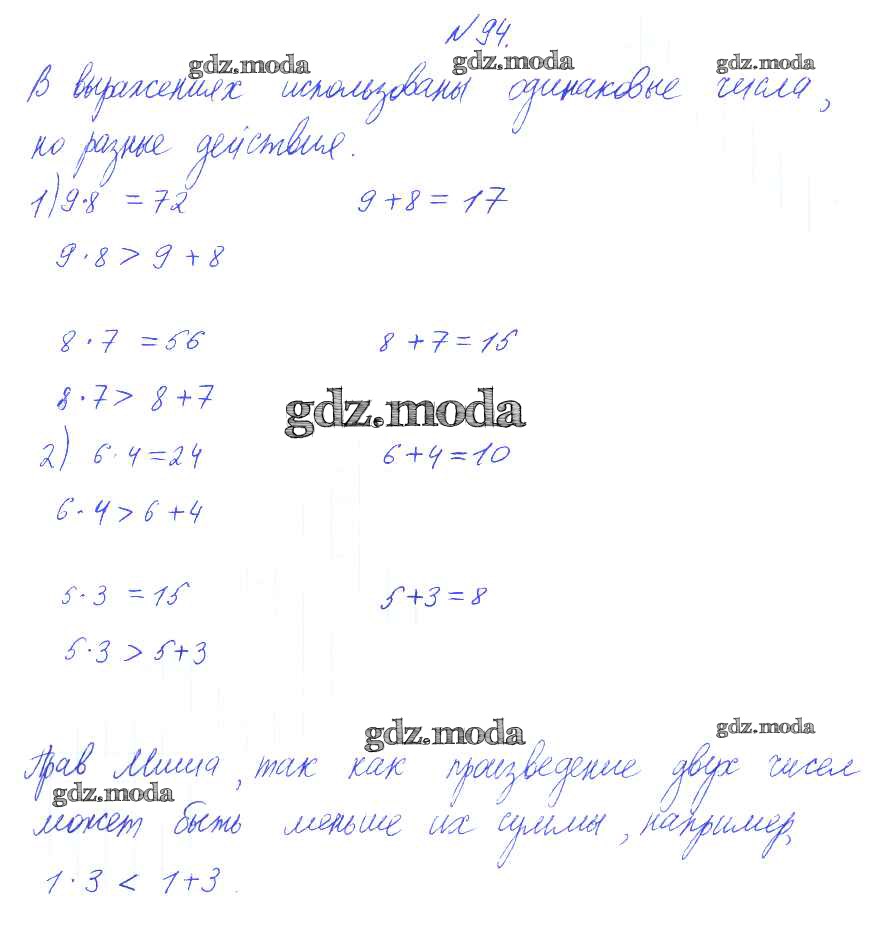 № 94.
gdz.moda gdz.moda gdz.moda
В выражениях использованы одинаковые числа,
но разные действия.
1) 9·8 = 72 9 + 8 = 17
9 · 8 > 9 + 8
8 · 7 = 56 8 + 7 = 15
8 · 7 > 8 + 7
gdz.moda
2) 6 · 4 = 24 6 + 4 = 10
6 · 4 > 6 + 4
5 · 3 = 15 5 + 3 = 8
5 · 3 > 5 + 3
gdz.moda gdz.moda
Прав Миша, так как произведение двух чисел
gdz.moda
может быть меньше их суммы, например,
1 · 3 < 1 + 3.